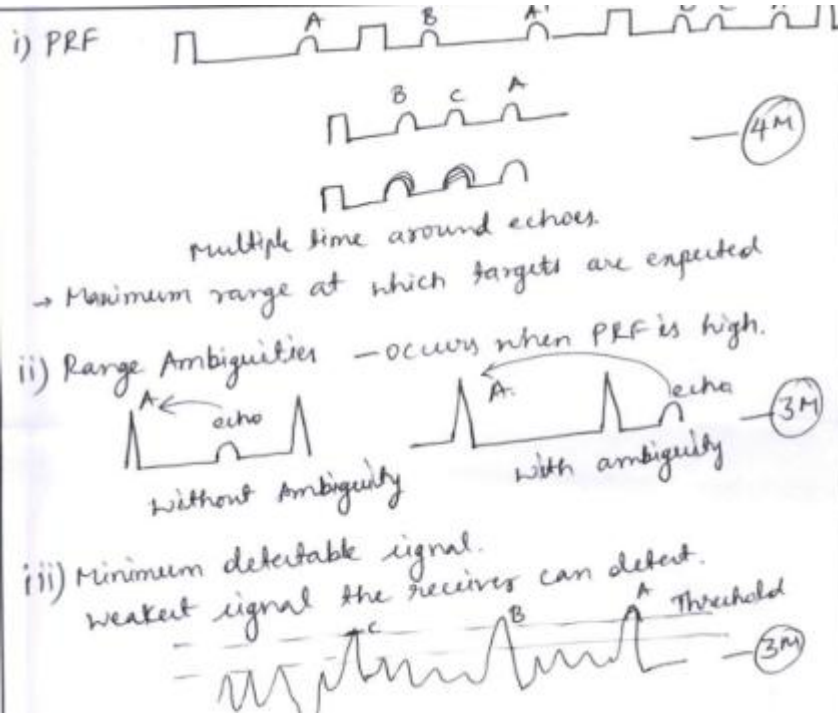 i) PRF A B A'
B C A
4M
Multiple time around echoes.
→ Maximum range at which targets are expected
ii) Range Ambiguities - occurs when PRF is high.
A echo A. echo
3M
Without Ambiguity With ambiguity
iii) Minimum detectable signal.
Weakest signal the receiver can detect.
C B A Threshold
3M